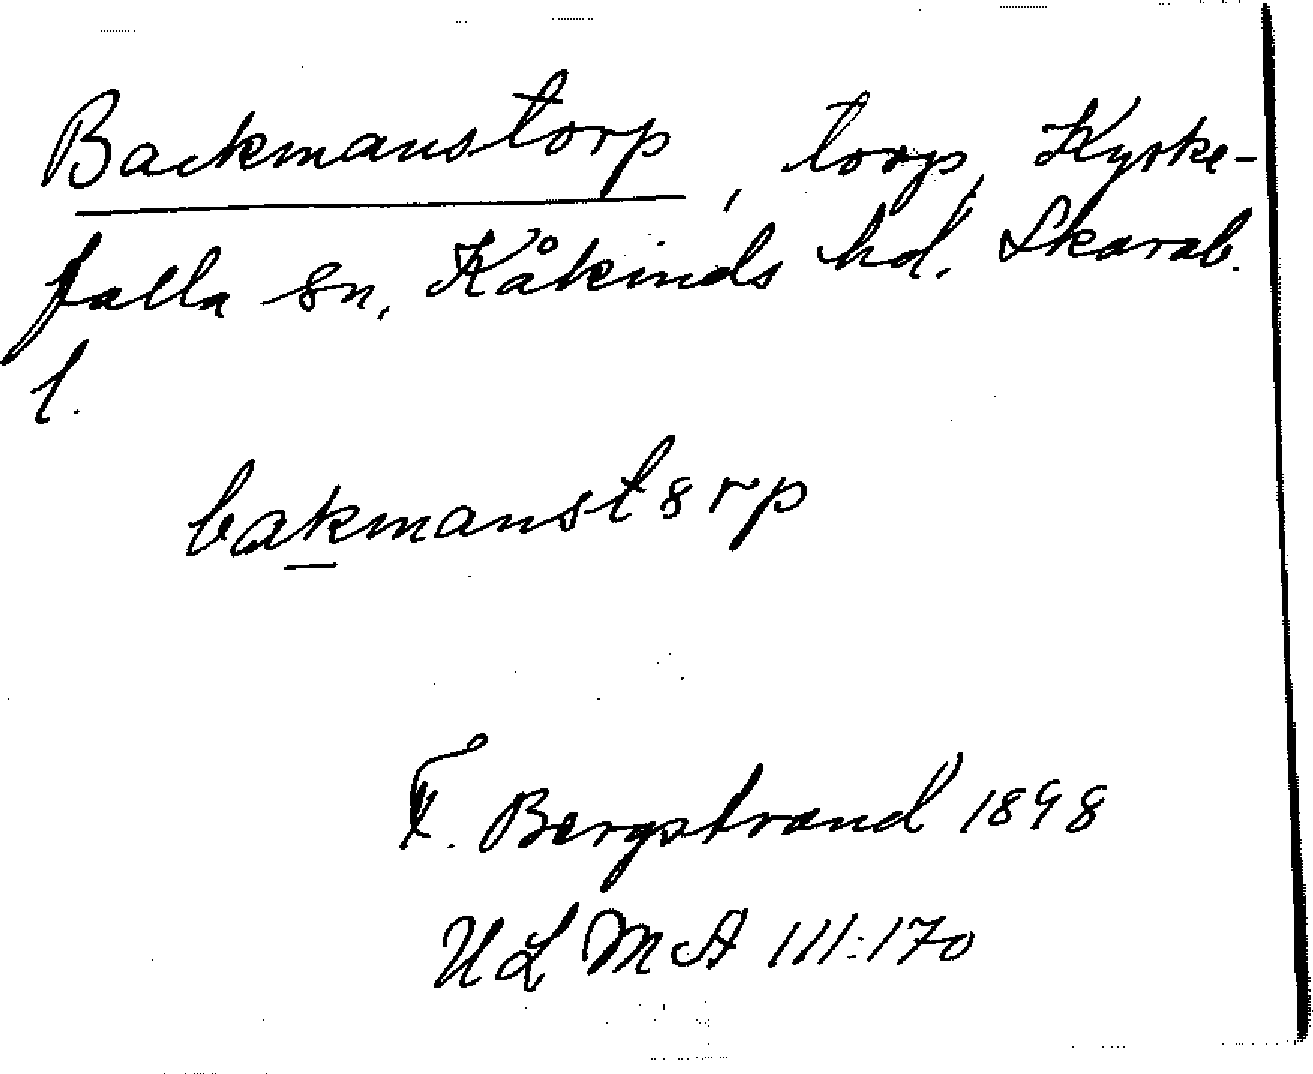 Backmanstorp, torp, Kyrke-
falla sn, Kåkinds hd. Skarab.
l.
bakmanst8rp
F. Bergstrand 1898
ULMA 111:170